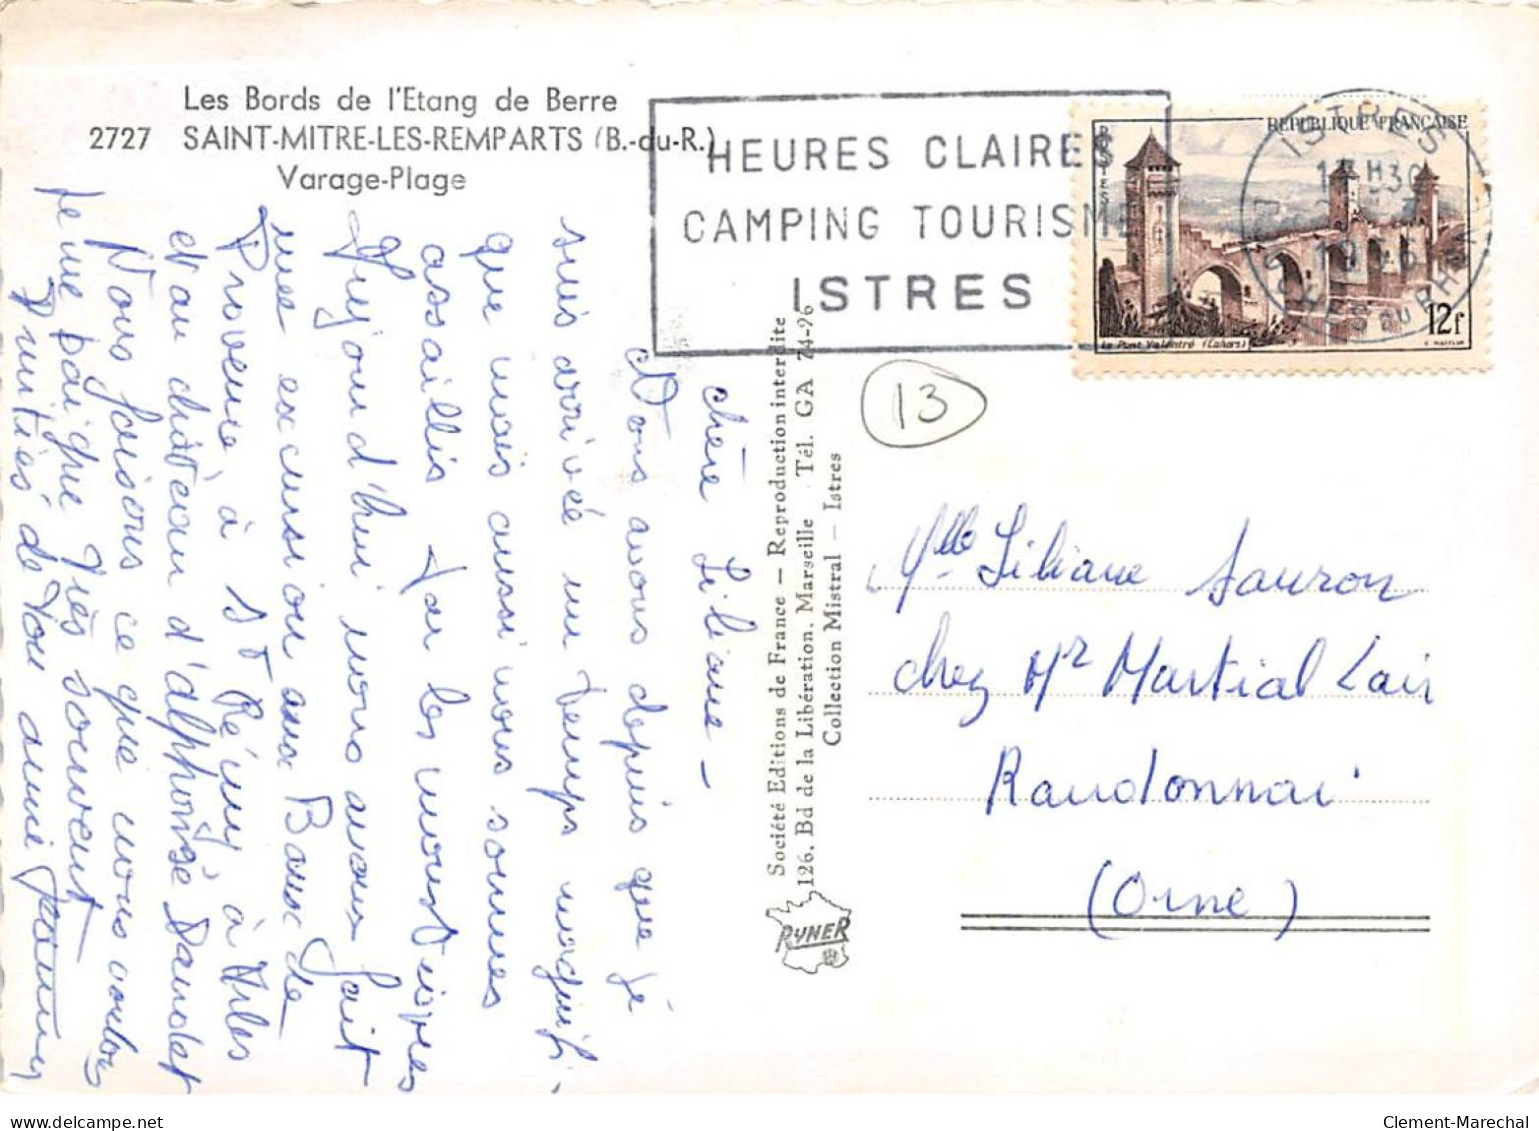 Les Bords de l'Etang de Berre
2727 SAINT-MITRE-LES-REMPARTS (B.-du-R.)
Varage-Plage
HEURES CLAIRES
CAMPING TOURISME
ISTRES
REPUBLIQUE FRANÇAISE
POSTES
Le Pont Valentré (Cahors)
12f
ISTRES
BOUCHES DU RHONE
13
chère Liliane -
Nous avons depuis que je
suis arrivée un temps magnifi-
que mais aussi nous sommes
assaillis par les moustiques
Aujourd'hui nous avons fait
une excursion aux Baux de
Provence à St Rémy, à Arles
et au château d'Alphonse Daudet
Nous faisons ce que nous voulons
je me baigne très souvent
Amitiés de ton amie
Société Editions de France - Reproduction interdite
126, Bd de la Libération, Marseille - Tél. GA 74-96
Collection Mistral - Istres
RYNER
Mlle Liliane Sauron
chez Mr Martial Lair
Randonnai
(Orne)
Clement-Marechal